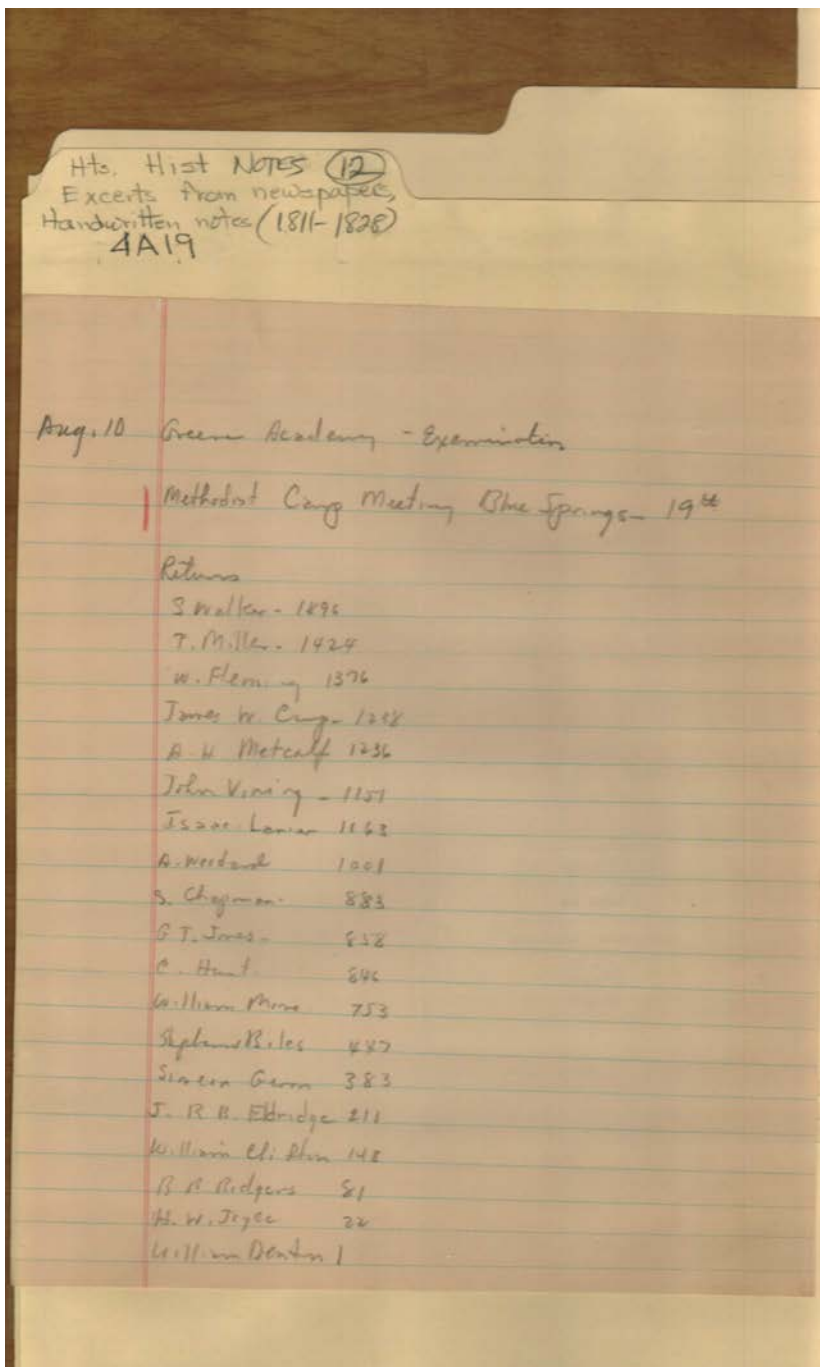 Hts. Hist NOTES 12
Excerts from newspapers,
Handwritten notes (1811-1828)
4A19
Aug. 10 Greene Academy - Examination
Methodist Camp Meeting Blue Springs - 19th
Returns
S Walker - 1896
T. Miller - 1424
W. Fleming 1376
James W. Camp -
A W Metcalf 1236
John Vining - 1151
Isaac Lanier 1163
A. 1001
S. Chapman - 883
G T. Jones - 858
C. Hunt 846
William Moore 753
Stephens Biles 447
Simeon 383
J. R. B. Eldridge 211
William Clifton 148
B B Rodgers 81
H. W. Joyce 22
William Denton 1